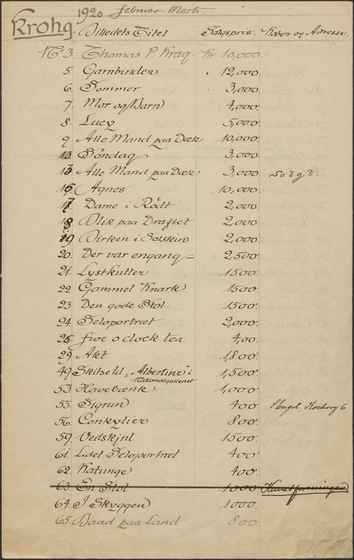 Krohg 1920 februar Marts
Billedets Titel Købere og Adresse
N: 3. Thomas P Krag Kr 10,000
5. Garnbinder 12,000
6. Sommer 3,000
7. Mor og Barn 4,000
8. Lucy 5,000
9. Alle Mand paa Dæk 10,000
Søndag 3,000
Alle Mand paa Dæk 3,000 Solgt.
Agnes 10,000
Dame i Rødt 2,000
18 Blik paa 2,000
19 Birken i Solskin 2,000
20. Der var engang – 2,500
21. Lystkutter 1500
22. Gammel Knark 1500
23. Den gode Stol 1500
24. Selvportræt 2,000
25. five o clock tea 400
29. Akt 1,800
49. Skitse til "Albertine" i 1,500
53. Havebænk 1,000
55. Sigrun 400
56. Conkylier 800
59. Vedskjul 1500
61. Lidet Selvportræt 400
62. Kattunge 400
63. En Stol 1000 Kunstforeningen
64. I Skyggen 1000
65. Baad paa Land 800